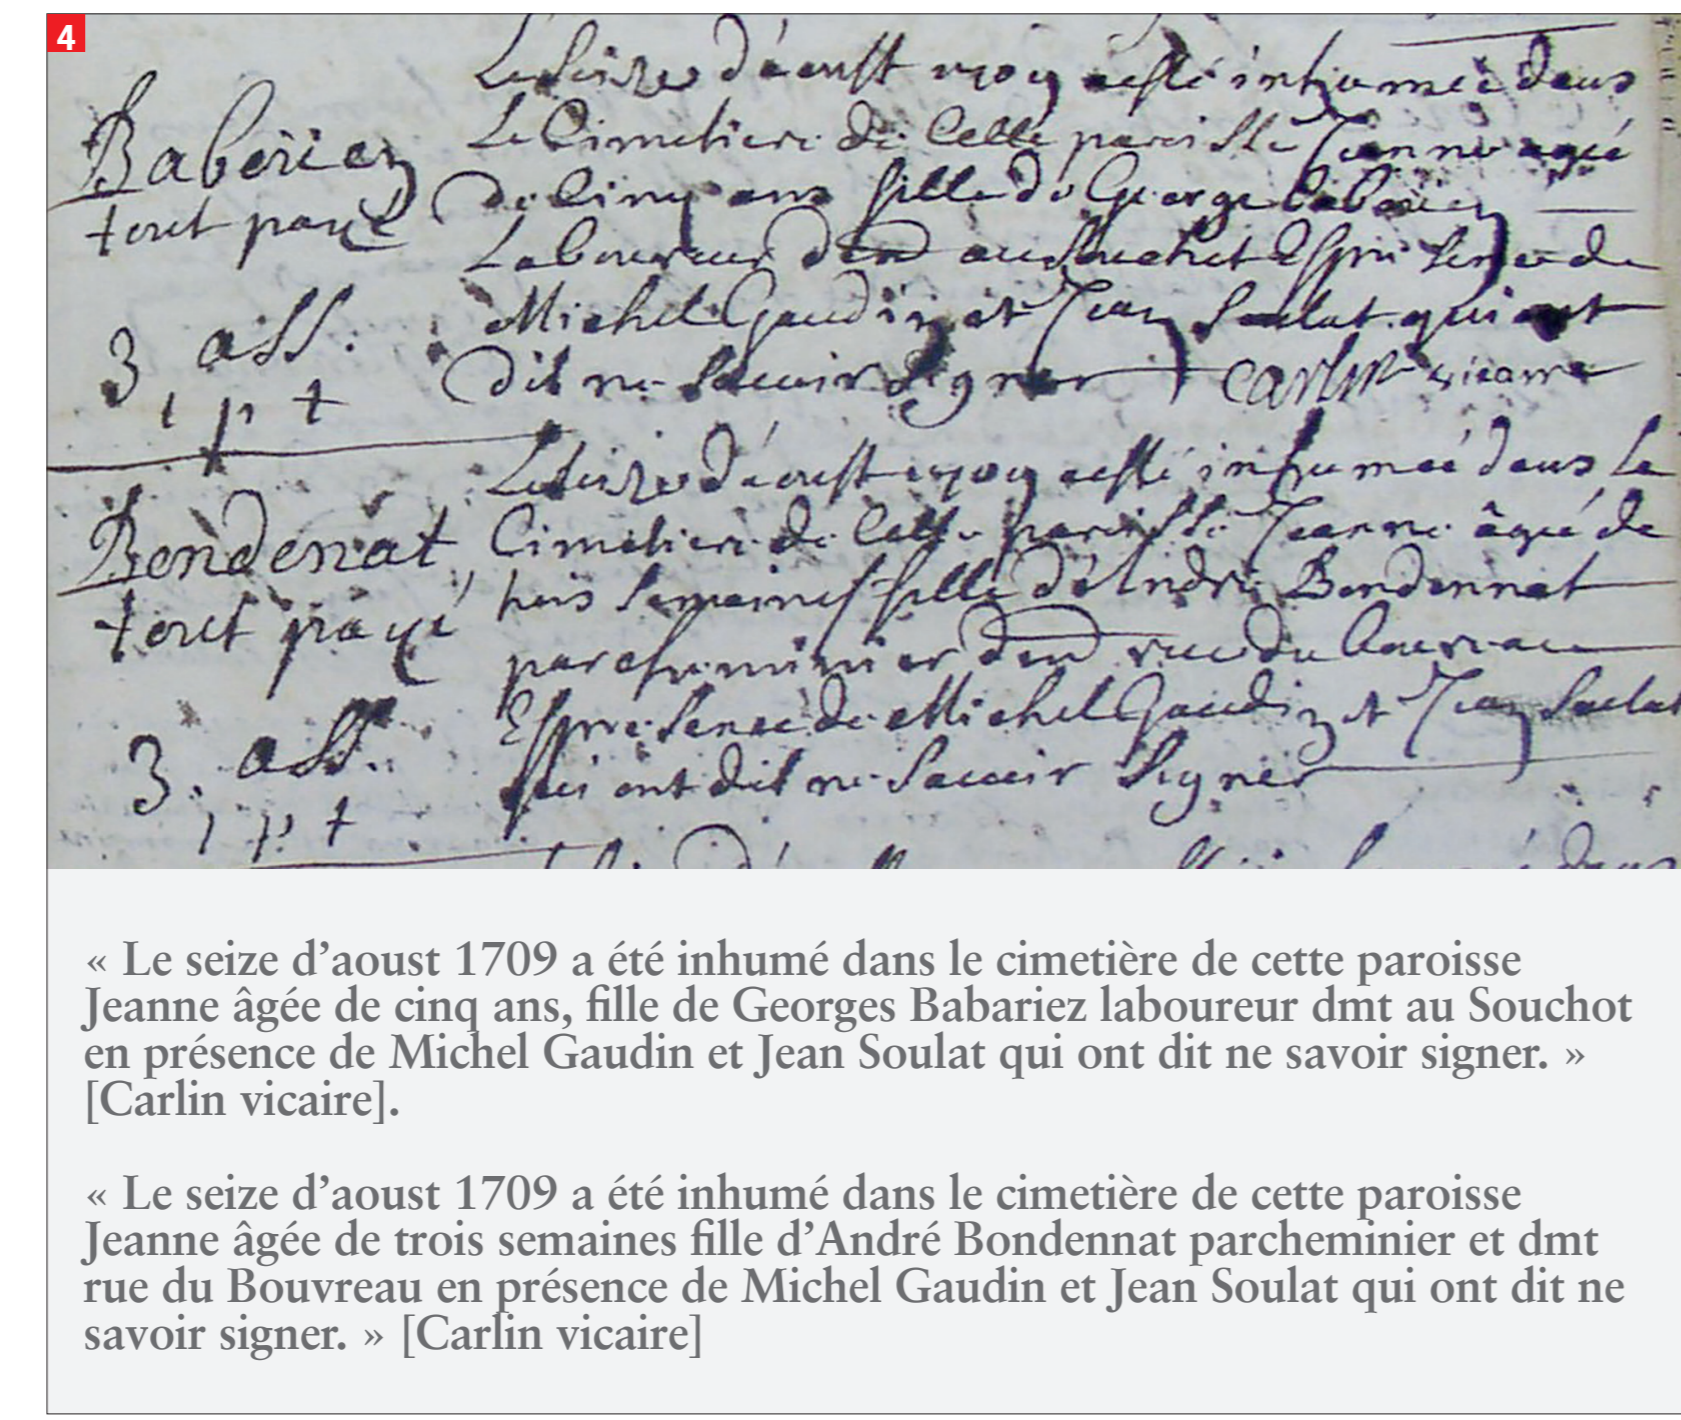 4
Le seize d'aoust 1709 a esté inhumée dans
Le Cimetiere de Cette paroisse Jeanne agée
Baberiez
de Cinq ans fille de George baberiez
tout payé
Laboureur dmt au Souchet Espresence de
Michel Gaudin et Jean Soulat qui ont
3 ass.
dit ne Sauoir Signer Carlin vicaire
1 p t
Le seize d'aoust 1709 a esté inhumée dans Le
Bondenat
Cimetiere de Cette paroisse Jeanne âgée de
trois Semaines fille d'André Bondennat
tout payé
parcheminier dmt rue du
Espresence de Michel Gaudin et Jean Soulat
3. ass.
qui ont dit ne Sauoir Signer
1 p. t
« Le seize d’aoust 1709 a été inhumé dans le cimetière de cette paroisse
Jeanne âgée de cinq ans, fille de Georges Babariez laboureur dmt au Souchot
en présence de Michel Gaudin et Jean Soulat qui ont dit ne savoir signer. »
[Carlin vicaire].
« Le seize d’aoust 1709 a été inhumé dans le cimetière de cette paroisse
Jeanne âgée de trois semaines fille d’André Bondennat parcheminier et dmt
rue du Bouvreau en présence de Michel Gaudin et Jean Soulat qui ont dit ne
savoir signer. » [Carlin vicaire]